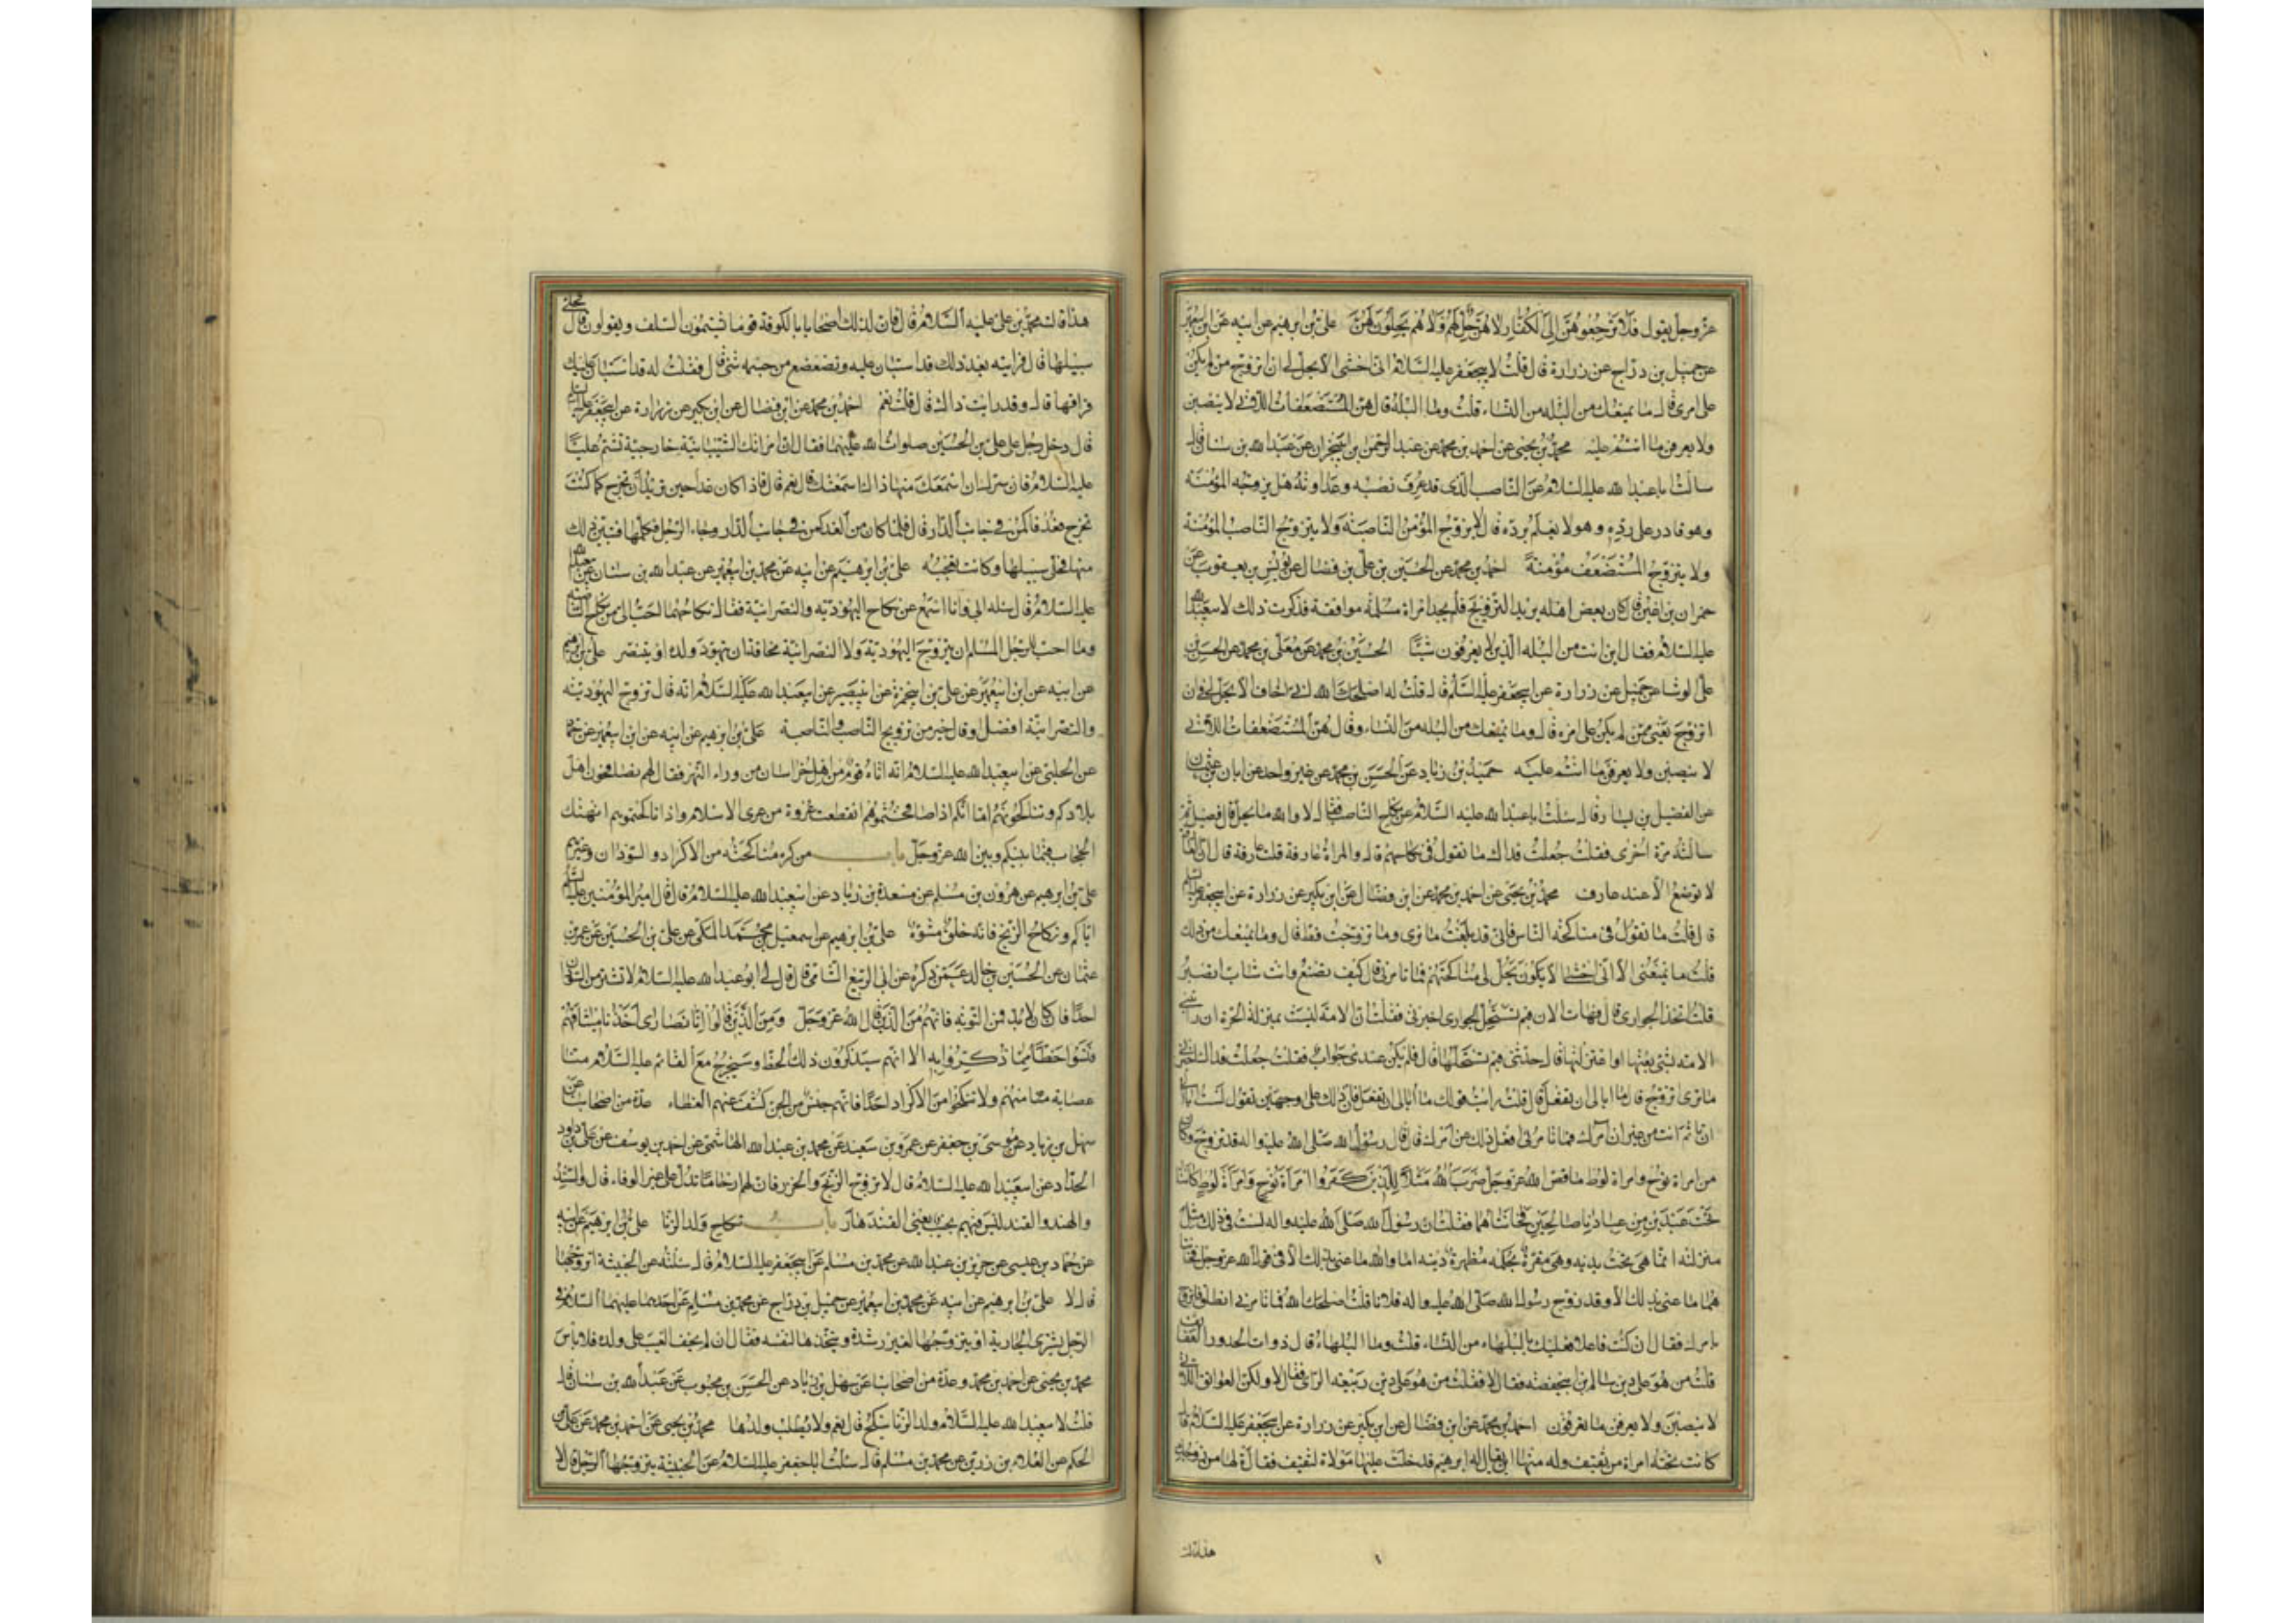 عزّ وجل يقول فَلَا تَرْجِعُوهُنَّ إِلَى الْكُفَّارِ لَا هُنَّ حِلٌّ لَهُمْ وَلَا هُمْ يَحِلُّونَ لَهُنَّ علي بن ابرهيم عن ابيه عن ابن ابي عمير
عن جميل بن درّاج عن زرارة قال قلت لابي جعفر عليه السلام اني اخشى الا يحل لي ان اتزوج من لم يكن
على امري قال ما يمنعك من البله من النساء قلت وما البله قال هن المستضعفات اللاتي لا ينصبن
ولا يعرفن ما انتم عليه محمد بن يحيى عن احمد بن محمد عن عبد الرحمن بن ابي نجران عن عبد الله بن سنان قال
سالت ابا عبد الله عليه السلام عن الناصب الذي قد عرف نصبه وعداوته هل يزوجه المؤمنة
وهو قادر على رده وهو لا يعلم برده قال لا يزوج المؤمن الناصبة ولا يتزوج الناصب المؤمنة
ولا يتزوج المستضعف مؤمنة احمد بن محمد عن الحسن بن علي بن فضال عن يونس بن يعقوب عن
حمران بن اعين قال كان بعض اهله يريد التزويج فلم يجد امراة مسلمة موافقة فذكرت ذلك لابي عبد الله
عليه السلام فقال اين انت من البله الذين لا يعرفون شيئا الحسين بن محمد عن معلى بن محمد عن الحسن بن
علي الوشا عن جميل عن زرارة عن ابي جعفر عليه السلم قال قلت له اصلحك الله اني اخاف الا يحل لي ان
اتزوج يعني ممن لم يكن على امره قال وما يمنعك من البله من النساء وقال هن المستضعفات اللاتي
لا ينصبن ولا يعرفن ما انتم عليه حميد بن زياد عن الحسن بن محمد عن غير واحد عن ابان بن عثمان
عن الفضيل بن يسار قال سالت ابا عبد الله عليه السلام عن نكاح الناصب فقال لا والله ما يحل قال فضيل ثم
سالته مرة اخرى فقلت جعلت فداك ما تقول في نكاحهم قال والمراة عارفة قلت عارفة قال ان العارفة
لا توضع الا عند عارف محمد بن يحيى عن احمد بن محمد عن ابن فضال عن ابن بكير عن زرارة عن ابي جعفر عليه السلم
قال قلت ما تقول في مناكحة الناس فاني قد بلغت ما ترى وما تزوجت فقط قال وما يمنعك من ذلك
قلت ما يمنعني الا اني اخشى الا يكون يحل لي مناكحتهم فما تامرني قال كيف تصنع وانت شاب اتصبر
قلت اتخذ الجواري قال فهات الان فبم تستحل الجواري اخبرني فقلت ان الامة ليست بمنزلة الحرة ان رابتني
الامة بشيء بعتها او اعتزلتها قال حدثني فبم تستحلها قال فلم يكن عندي جواب فقلت جعلت فداك اخبرني
ما ترى اتزوج قال ما ابالي ان تفعل قال قلت ارايت قولك ما ابالي ان تفعل فان ذلك على وجهين تقول لست ابالي
ان تاثم انت من غير ان امرك فما تامرني افعل ذلك عن امرك قال قال رسول الله صلى الله عليه واله قد تزوج وكان
من امراة نوح وامراة لوط ما قص الله عز وجل ضَرَبَ اللَّهُ مَثَلًا لِلَّذِينَ كَفَرُوا امْرَأَةَ نُوحٍ وَامْرَأَةَ لُوطٍ كَانَتَا
تَحْتَ عَبْدَيْنِ مِنْ عِبَادِنَا صَالِحَيْنِ فَخَانَتَاهُمَا فقلت ان رسول الله صلى الله عليه واله لست في ذلك مثل
منزلته انما هي تحت يديه وهي مقرة بحكمه مظهرة دينه اما والله ما عنى بذلك الا في قول الله عز وجل فخانتا
هما ما عنى بذلك الا وقد زوج رسول الله صلى الله عليه واله فلانا قلت اصلحك الله فما تامرني انطلق فاتزوج
بامرك فقال ان كنت فاعلا فعليك بالبلهاء من النساء قلت وما البلهاء قال ذوات الخدور العفائف
قلت من هو على دين سالم بن ابي حفصة فقال لا فقلت من هو على دين ربيعة الراي فقال لا ولكن العواتق اللاتي
لا ينصبن ولا يعرفن ما تعرفون احمد بن محمد عن ابن فضال عن ابن بكير عن زرارة عن ابي جعفر عليه السلام قال
كانت تحته امراة من ثقيف وله منها ابن يقال له ابرهيم فدخلت عليها مولاة لثقيف فقالت لها من زوجك
هذا قالت
هذا قالت محمد بن علي عليه السلام قالت فان لذلك اصحابا بالكوفة قوما يشتمون السلف ويقولون قال فخلى
سبيلها قال فرايته بعد ذلك قد استبان عليه وتضعضع من جسمه شيء قال فقلت له قد استبان عليك
فراقها قال وقد رايت ذاك قال قلت نعم احمد بن محمد عن ابن فضال عن ابن بكير عن زرارة عن ابي جعفر عليه السلم
قال دخل رجل على علي بن الحسين صلوات الله عليهما فقال ان امراتك الشيبانية خارجية تشتم عليا
عليه السلام فان سرك ان اسمعك منها ذاك اسمعتك قال نعم قال فاذا كان غدا حين تريد ان تخرج كما كنت
تخرج فعد فاكمن في جانب الدار قال فلما كان من الغد كمن في جانب الدار وجاء الرجل فكلمها فتبين ذلك
منها فخلى سبيلها وكانت تعجبه علي بن ابرهيم عن ابيه عن محمد بن ابي عمير عن عبد الله بن سنان عن ابي عبد الله
عليه السلام قال سئله ابي وانا اسمع عن نكاح اليهودية والنصرانية فقال نكاحهما احب الي من نكاح الناصبية
وما احب للرجل المسلم ان يتزوج اليهودية ولا النصرانية مخافة ان يتهود ولده او يتنصر علي بن ابرهيم
عن ابيه عن ابن ابي عمير عن علي بن ابي حمزة عن ابي بصير عن ابي عبد الله عليه السلام انه قال تزوج اليهودية
والنصرانية افضل او قال خير من تزويج الناصب والناصبة علي بن ابرهيم عن ابيه عن ابن ابي عمير عن حماد
عن الحلبي عن ابي عبد الله عليه السلام انه اتاه قوم من اهل خراسان من وراء النهر فقال لهم تصافحون اهل
بلادكم وتناكحونهم اما انكم اذا صافحتموهم انقطعت عروة من عرى الاسلام واذا ناكحتموهم انهتك
الحجاب فيما بينكم وبين الله عز وجل باب من كره مناكحته من الاكراد والسودان وغيرهم
علي بن ابرهيم عن هرون بن مسلم عن مسعدة بن زياد عن ابي عبد الله عليه السلام قال قال امير المؤمنين عليه السلم
اياكم ونكاح الزنج فانه خلق مشوه علي بن ابرهيم عن اسمعيل بن محمد المكي عن علي بن الحسين عن عمرو بن
عثمان عن الحسين بن خالد عمن ذكره عن ابي الربيع الشامي قال قال لي ابو عبد الله عليه السلام لا تشتر من السودان
احدا فان كان لا بد فمن النوبة فانهم من الذين قال الله عز وجل وَمِنَ الَّذِينَ قَالُوا إِنَّا نَصَارَى أَخَذْنَا مِيثَاقَهُمْ
فَنَسُوا حَظًّا مِمَّا ذُكِّرُوا بِهِ الا انهم سيذكرون ذلك الحظ وسيخرج مع القائم عليه السلام منا
عصابة منهم ولا تنكحوا من الاكراد احدا فانهم جنس من الجن كشف عنهم الغطاء عدة من اصحابنا عن
سهل بن زياد عن موسى بن جعفر عن عمرو بن سعيد عن محمد بن عبد الله الهاشمي عن احمد بن يوسف عن علي بن داود
الحداد عن ابي عبد الله عليه السلام قال لا تزوج الزنج والخزر فان لهم ارحاما تدل على غير الوفاء قال والسند
والهند والقند ليس فيهم نجيب يعني القندهار باب نكاح ولد الزنا علي بن ابرهيم عن ابيه
عن حماد بن عيسى عن حريز بن عبد الله عن محمد بن مسلم عن ابي جعفر عليه السلام قال سئلته عن الخبيثة اتزوجها
قال لا علي بن ابرهيم عن ابيه عن محمد بن ابي عمير عن جميل بن دراج عن محمد بن مسلم عن احدهما عليهما السلام في
الرجل يشتري الجارية او يتزوجها لغير رشدة ويتخذها لنفسه فقال ان لم يخف العيب على ولده فلا باس
محمد بن يحيى عن احمد بن محمد وعدة من اصحابنا عن سهل بن زياد عن الحسن بن محبوب عن عبد الله بن سنان قال
قلت لابي عبد الله عليه السلام ولد الزنا ينكح قال نعم ولا يطلب ولدها محمد بن يحيى عن احمد بن محمد عن علي بن
الحكم عن العلاء بن رزين عن محمد بن مسلم قال سئلت ابا جعفر عليه السلام عن الخبيثة يتزوجها الرجل قال لا